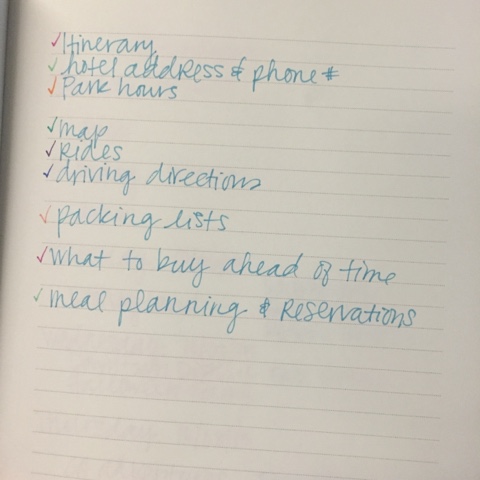 ✓Itinerary
✓hotel address & phone #
✓Park hours
✓map
✓Rides
✓driving directions
✓packing lists
✓what to buy ahead of time
✓meal planning & Reservations